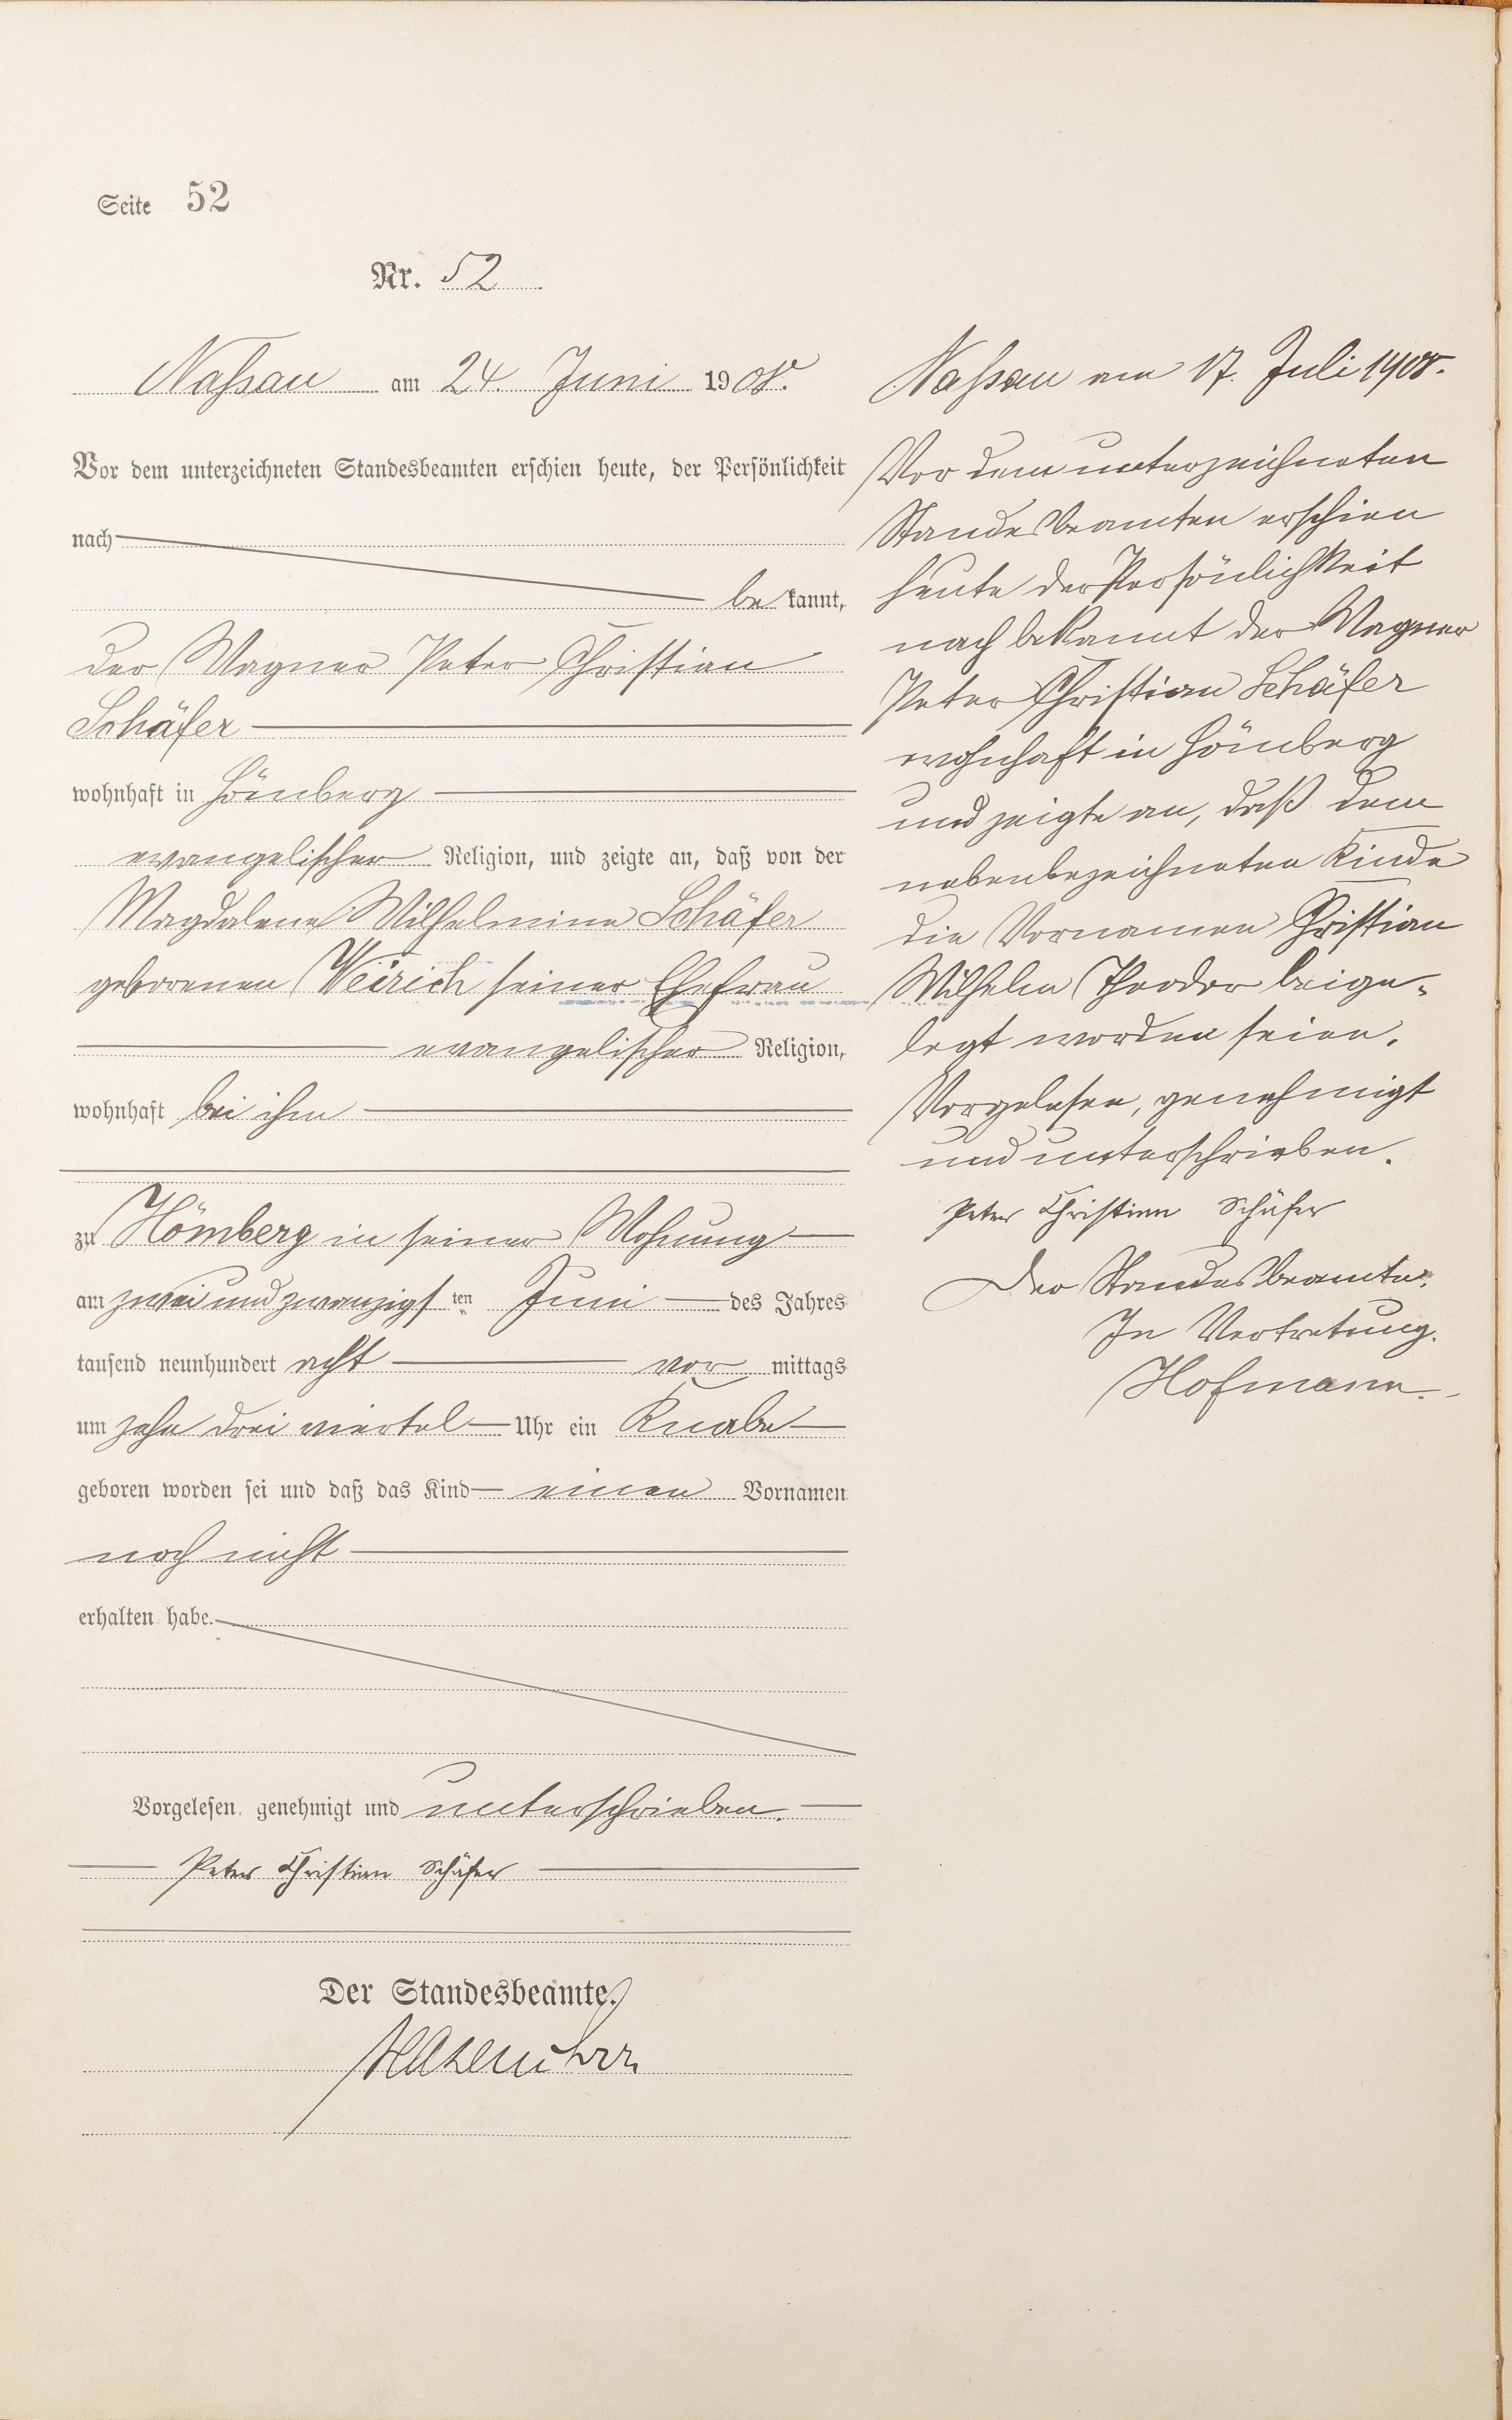 Seite 52
Nr. 52
Nassau am 24. Juni 1908.
Vor dem unterzeichneten Standesbeamten erschien heute, der Persönlichkeit
nach
be kannt,
der Wagner Peter Christian
Schäfer
wohnhaft in Hömberg
evangelischer Religion, und zeigte an, daß von der
Magdalene Wilhelmine Schäfer
geborenen Weirich seiner Ehefrau
evangelischer Religion,
wohnhaft bei ihm
zu Hömberg in seiner Wohnung
am zwei und zwanzigsten Juni des Jahres
tausend neunhundert acht vor mittags
um zehn drei viertel Uhr ein Knabe
geboren worden sei und daß das Kind einen Vornamen
noch nicht
erhalten habe.
Vorgelesen, genehmigt und unterschrieben.
Peter Christian Schäfer
Der Standesbeamte.
Nassau am 17. Juli 1908.
Vor dem unterzeichneten
Standesbeamten erschien
heute der Persönlichkeit
nach bekannt der Wagner
Peter Christian Schäfer
wohnhaft in Hömberg
und zeigte an, daß dem
nebenbezeichneten Kinde
die Vornamen Christian
Wilhelm Theodor beige-
legt worden seien.
Vorgelesen, genehmigt
und unterschrieben.
Peter Christian Schäfer
Der Standesbeamte.
In Vertretung.
Hofmann.